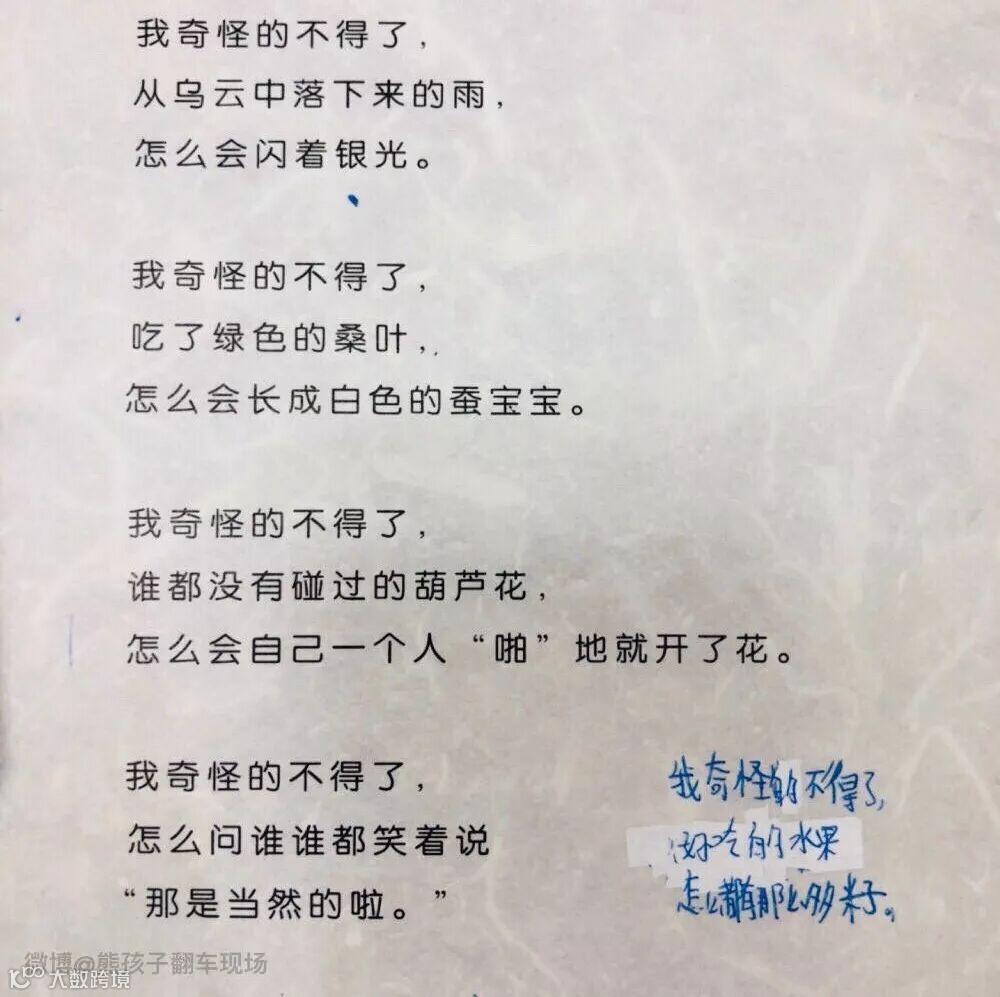 我奇怪的不得了，
从乌云中落下来的雨，
怎么会闪着银光。
我奇怪的不得了，
吃了绿色的桑叶，
怎么会长成白色的蚕宝宝。
我奇怪的不得了，
谁都没有碰过的葫芦花，
怎么会自己一个人“啪”地就开了花。
我奇怪的不得了，
怎么问谁谁都笑着说
“那是当然的啦。”
我奇怪的不得了，
好吃的水果
怎么都有那么多籽。
微博@熊孩子翻车现场
大数跨境